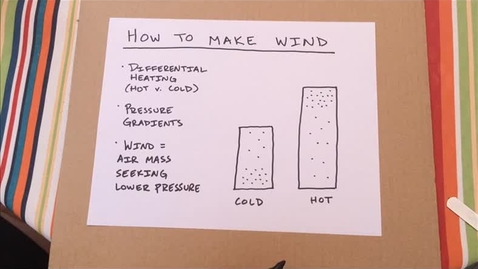 HOW TO MAKE WIND
· DIFFERENTIAL
HEATING
(HOT V. COLD)
· PRESSURE
GRADIENTS
· WIND =
AIR MASS
SEEKING
LOWER PRESSURE
COLD
HOT